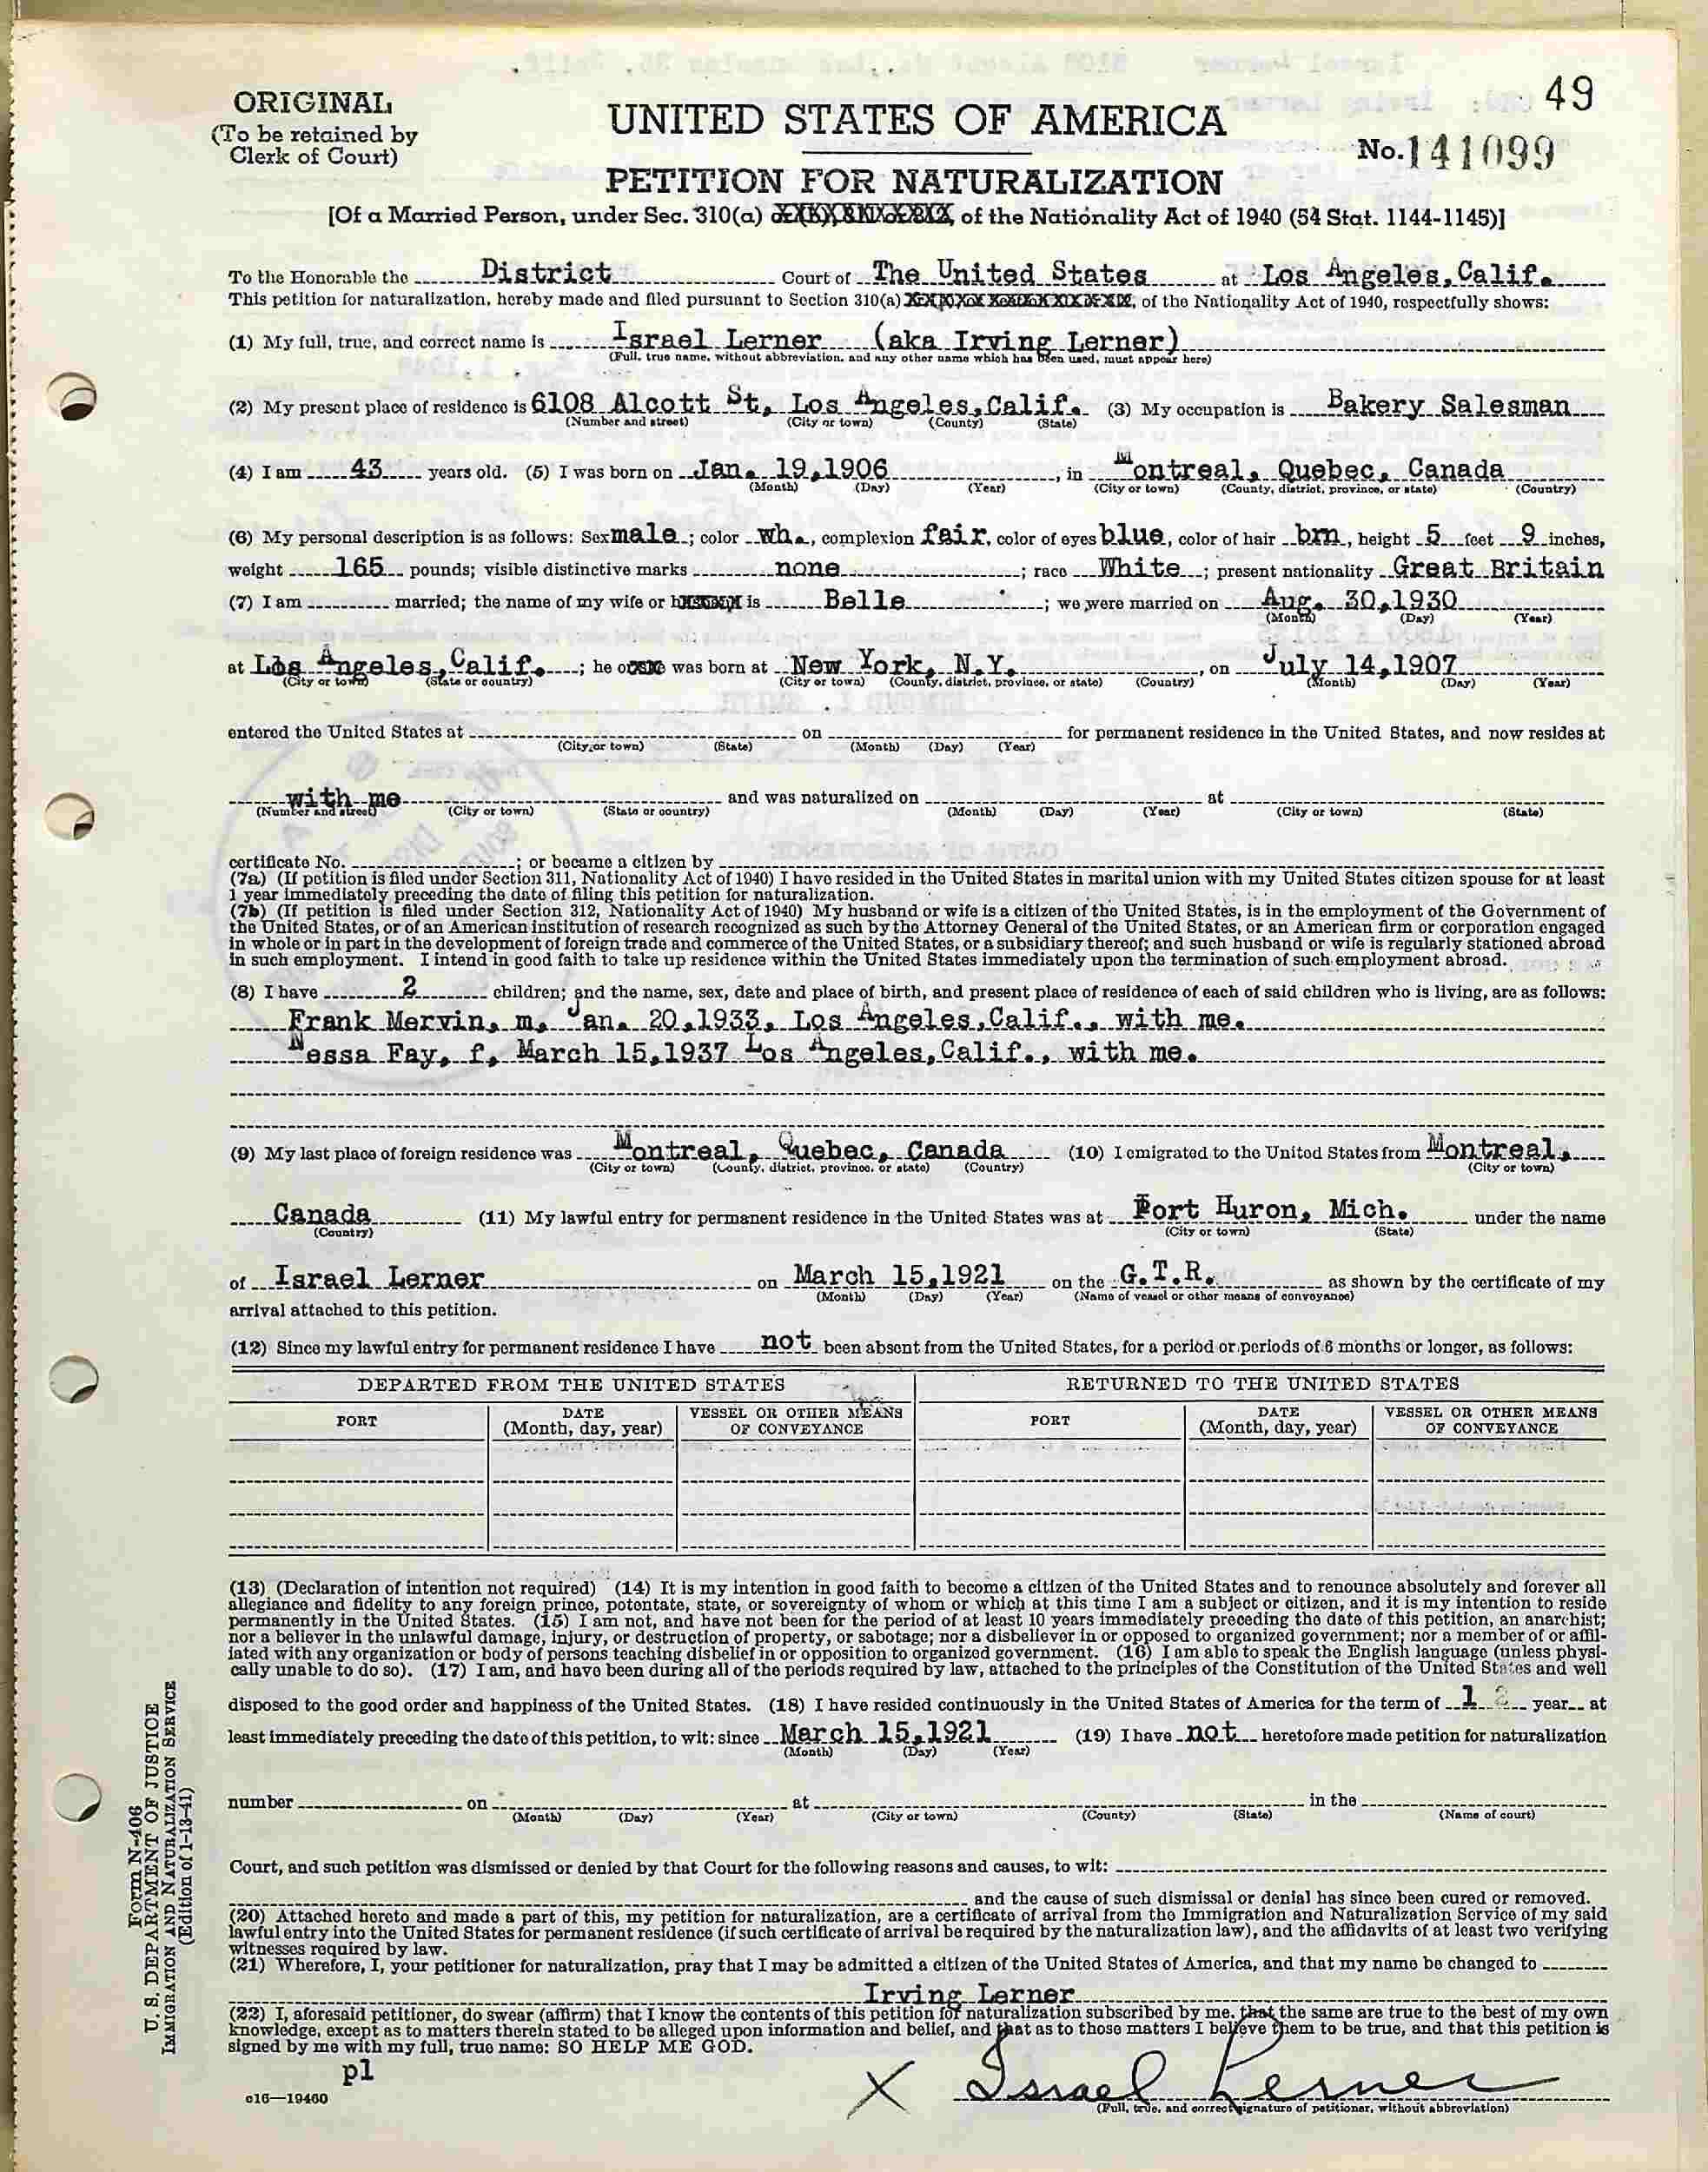 49
ORIGINAL
(To be retained by
Clerk of Court)
UNITED STATES OF AMERICA
No. 141099
PETITION FOR NATURALIZATION
[Of a Married Person, under Sec. 310(a) of the Nationality Act of 1940 (54 Stat. 1144-1145)]
To the Honorable the District Court of The United States at Los Angeles, Calif.
This petition for naturalization, hereby made and filed pursuant to Section 310(a) of the Nationality Act of 1940, respectfully shows:
(1) My full, true, and correct name is Israel Lerner (aka Irving Lerner)
(Full, true name, without abbreviation, and any other name which has been used, must appear here)
(2) My present place of residence is 6108 Alcott St, Los Angeles, Calif. (3) My occupation is Bakery Salesman
(Number and street) (City or town) (County) (State)
(4) I am 43 years old. (5) I was born on Jan. 19,1906, in Montreal, Quebec, Canada
(Month) (Day) (Year) (City or town) (County, district, province, or state) (Country)
(6) My personal description is as follows: Sex male; color wh., complexion fair, color of eyes blue, color of hair brn, height 5 feet 9 inches,
weight 165 pounds; visible distinctive marks none; race White; present nationality Great Britain
(7) I am married; the name of my wife or is Belle; we were married on Aug. 30,1930
(Month) (Day) (Year)
at Los Angeles, Calif.; he or was born at New York, N.Y., on July 14,1907
(City or town) (State or country) (City or town) (County, district, province, or state) (Country) (Month) (Day) (Year)
entered the United States at on for permanent residence in the United States, and now resides at
(City or town) (State) (Month) (Day) (Year)
with me and was naturalized on at
(Number and street) (City or town) (State or country) (Month) (Day) (Year) (City or town) (State)
certificate No. ; or became a citizen by
(7a) (If petition is filed under Section 311, Nationality Act of 1940) I have resided in the United States in marital union with my United States citizen spouse for at least
1 year immediately preceding the date of filing this petition for naturalization.
(7b) (If petition is filed under Section 312, Nationality Act of 1940) My husband or wife is a citizen of the United States, is in the employment of the Government of
the United States, or of an American institution of research recognized as such by the Attorney General of the United States, or an American firm or corporation engaged
in whole or in part in the development of foreign trade and commerce of the United States, or a subsidiary thereof; and such husband or wife is regularly stationed abroad
in such employment. I intend in good faith to take up residence within the United States immediately upon the termination of such employment abroad.
(8) I have 2 children; and the name, sex, date and place of birth, and present place of residence of each of said children who is living, are as follows:
Frank Mervin, m, Jan. 20,1933, Los Angeles, Calif., with me.
Nessa Fay, f, March 15,1937 Los Angeles, Calif., with me.
(9) My last place of foreign residence was Montreal, Quebec, Canada (10) I emigrated to the United States from Montreal,
(City or town) (County, district, province, or state) (Country) (City or town)
Canada (11) My lawful entry for permanent residence in the United States was at Port Huron, Mich. under the name
(Country) (City or town) (State)
of Israel Lerner on March 15,1921 on the G.T.R. as shown by the certificate of my
(Month) (Day) (Year) (Name of vessel or other means of conveyance)
arrival attached to this petition.
(12) Since my lawful entry for permanent residence I have not been absent from the United States, for a period or periods of 6 months or longer, as follows:
DEPARTED FROM THE UNITED STATES RETURNED TO THE UNITED STATES
PORT DATE (Month, day, year) VESSEL OR OTHER MEANS OF CONVEYANCE PORT DATE (Month, day, year) VESSEL OR OTHER MEANS OF CONVEYANCE
(13) (Declaration of intention not required) (14) It is my intention in good faith to become a citizen of the United States and to renounce absolutely and forever all
allegiance and fidelity to any foreign prince, potentate, state, or sovereignty of whom or which at this time I am a subject or citizen, and it is my intention to reside
permanently in the United States. (15) I am not, and have not been for the period of at least 10 years immediately preceding the date of this petition, an anarchist;
nor a believer in the unlawful damage, injury, or destruction of property, or sabotage; nor a disbeliever in or opposed to organized government; nor a member of or affil-
iated with any organization or body of persons teaching disbelief in or opposition to organized government. (16) I am able to speak the English language (unless physi-
cally unable to do so). (17) I am, and have been during all of the periods required by law, attached to the principles of the Constitution of the United States and well
disposed to the good order and happiness of the United States. (18) I have resided continuously in the United States of America for the term of 1 year at
least immediately preceding the date of this petition, to wit: since March 15,1921 (19) I have not heretofore made petition for naturalization
(Month) (Day) (Year)
number on at in the
(Month) (Day) (Year) (City or town) (County) (State) (Name of court)
Court, and such petition was dismissed or denied by that Court for the following reasons and causes, to wit:
and the cause of such dismissal or denial has since been cured or removed.
(20) Attached hereto and made a part of this, my petition for naturalization, are a certificate of arrival from the Immigration and Naturalization Service of my said
lawful entry into the United States for permanent residence (if such certificate of arrival be required by the naturalization law), and the affidavits of at least two verifying
witnesses required by law.
(21) Wherefore, I, your petitioner for naturalization, pray that I may be admitted a citizen of the United States of America, and that my name be changed to
Irving Lerner
(22) I, aforesaid petitioner, do swear (affirm) that I know the contents of this petition for naturalization subscribed by me, that the same are true to the best of my own
knowledge, except as to matters therein stated to be alleged upon information and belief, and that as to those matters I believe them to be true, and that this petition is
signed by me with my full, true name: SO HELP ME GOD.
pl
X Israel Lerner
(Full, true, and correct signature of petitioner, without abbreviation)
c16—19460
Form N-406
U. S. DEPARTMENT OF JUSTICE
IMMIGRATION AND NATURALIZATION SERVICE
(Edition of 1-13-41)